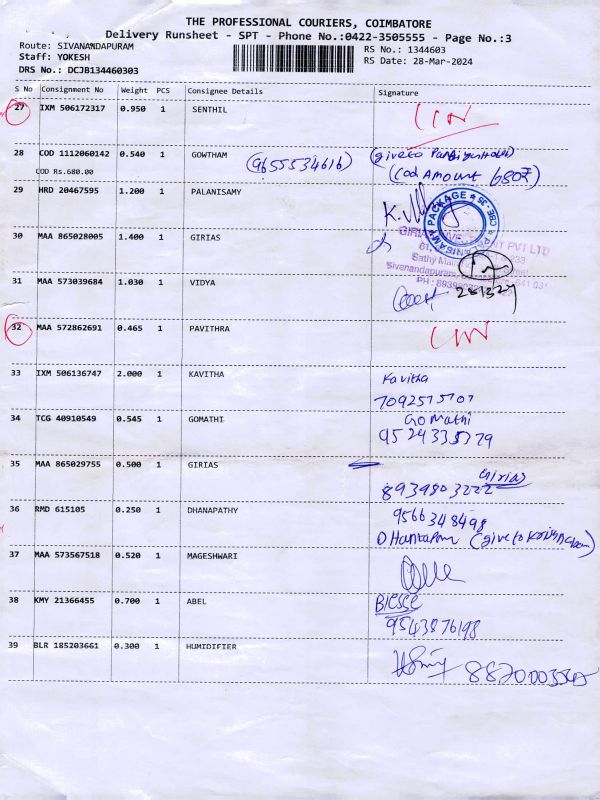 THE PROFESSIONAL COURIERS, COIMBATORE
Delivery Runsheet - SPT - Phone No.:0422-3505555 - Page No.:3
Route: SIVANANDAPURAM RS No.: 1344603
Staff: YOKESH RS Date: 28-Mar-2024
DRS No.: DCJB134460303
S No Consignment No Weight PCS Consignee Details Signature
27 IXM 506172317 0.950 1 SENTHIL
28 COD 1112060142 0.540 1 GOWTHAM (9655534616) (give to
COD Rs.680.00 (Cod Amount 680₹)
29 HRD 20467595 1.200 1 PALANISAMY
PALANISAMY PACKAGE CBE-35
30 MAA 865028005 1.400 1 GIRIAS
GIRIAS PVT LTD
Sathy
Sivanandapuram
31 MAA 573039684 1.030 1 VIDYA
32 MAA 572862691 0.465 1 PAVITHRA
33 IXM 506136747 2.000 1 KAVITHA Kavitha
34 TCG 40910549 0.545 1 GOMATHI Gomathi
35 MAA 865029755 0.500 1 GIRIAS Girias
8939803222
36 RMD 615105 0.250 1 DHANAPATHY 9566348498
(give to
37 MAA 573567518 0.520 1 MAGESHWARI
38 KMY 21366455 0.700 1 ABEL
9543876198
39 BLR 185203661 0.300 1 HUMIDIFIER